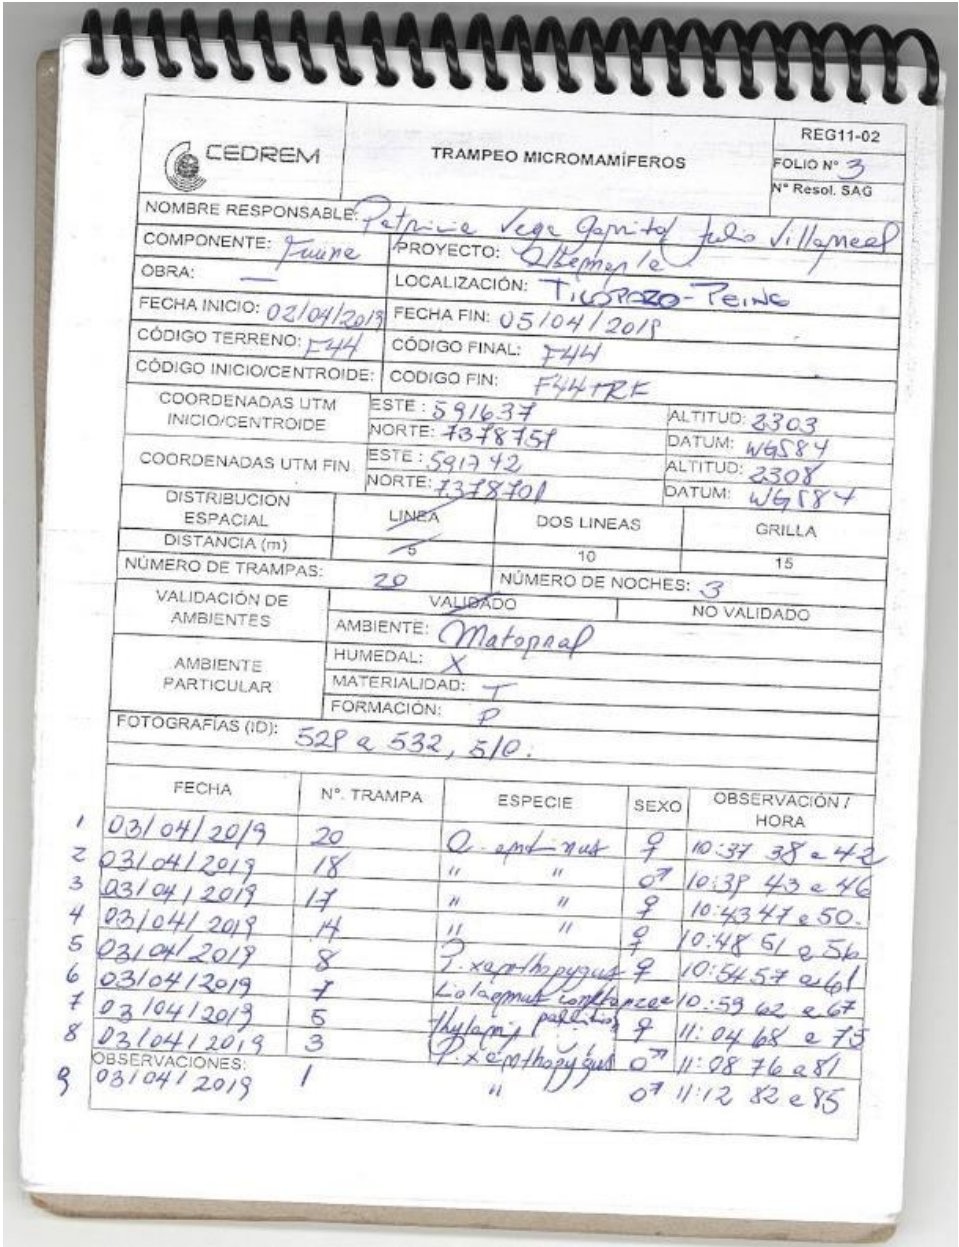 REG11-02
CEDREM
TRAMPEO MICROMAMÍFEROS
FOLIO N° 3
N° Resol. SAG
NOMBRE RESPONSABLE: Patricia Vega Julio Villarreal
COMPONENTE: PROYECTO: Albemarle
OBRA: — LOCALIZACIÓN: TILOPOZO-PEINE
FECHA INICIO: 02/04/2019 FECHA FIN: 05/04/2019
CÓDIGO TERRENO: F44 CÓDIGO FINAL: F44
CÓDIGO INICIO/CENTROIDE: CODIGO FIN: F44TRF
COORDENADAS UTM INICIO/CENTROIDE ESTE: 591637 ALTITUD: 2303
NORTE: 7378751 DATUM: WGS84
COORDENADAS UTM FIN ESTE: 591742 ALTITUD: 2308
NORTE: 7378701 DATUM: WGS84
DISTRIBUCION ESPACIAL LINEA DOS LINEAS GRILLA
DISTANCIA (m) 5 10 15
NÚMERO DE TRAMPAS: 20 NÚMERO DE NOCHES: 3
VALIDACIÓN DE AMBIENTES VALIDADO NO VALIDADO
AMBIENTE: Matorral
AMBIENTE PARTICULAR HUMEDAL: X
MATERIALIDAD: T
FORMACIÓN: P
FOTOGRAFÍAS (ID): 529 a 532, 510.
FECHA N°. TRAMPA ESPECIE SEXO OBSERVACIÓN / HORA
1 03/04/2019 20 ♀ 10:37 38 a 42
2 03/04/2019 18 " " ♂ 10:39 43 a 46
3 03/04/2019 17 " " ♀ 10:43 47 a 50.
4 03/04/2019 14 " " ♀ 10:48 51 a 56
5 03/04/2019 8 P. xanthopygus ♀ 10:54 57 a 61
6 03/04/2019 7 Liolaemus constanzae 10:59 62 a 67
7 03/04/2019 5 Thylamys pallidior ♀ 11:04 68 a 75
8 03/04/2019 3 P. xanthopygus ♂ 11:08 76 a 81
OBSERVACIONES:
9 03/04/2019 1 " ♂ 11:12 82 a 85